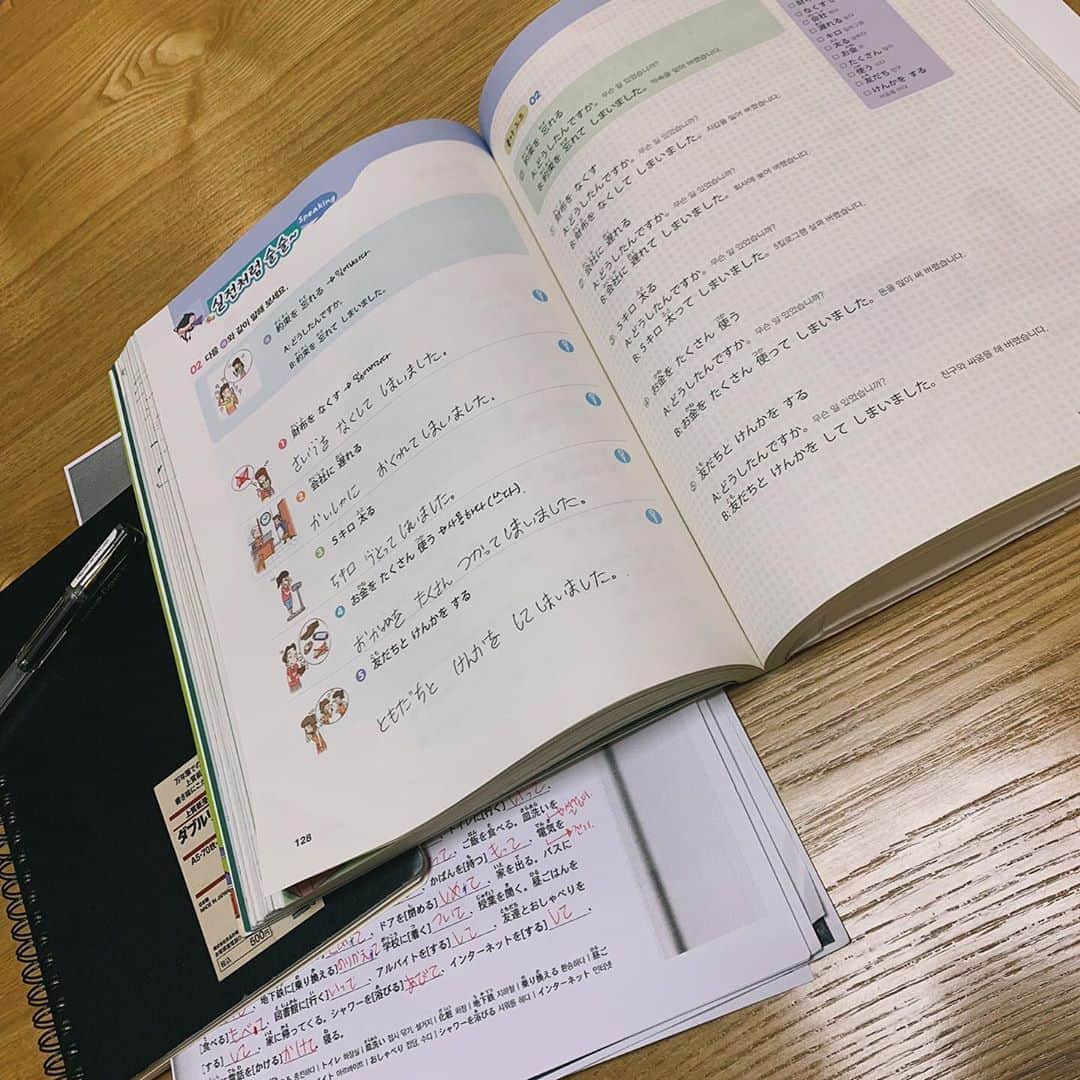 실전처럼 술술~
Speaking
02 다음 와 같이 말해 보세요.
約束を 忘れる → 잊어버리다
A: どうしたんですか。
B: 約束を 忘れて しまいました。
1 財布を なくす → 잃어버리다
さいふを なくして しまいました。
2 会社に 遅れる
かいしゃに おくれて しまいました。
3 5キロ 太る
しまいました。
4 お金を たくさん 使う → 사용하다 (쓰다).
おかねを たくさん つかって しまいました。
5 友だちと けんかを する
ともだちと けんかを して しまいました。
128
02
約束を 忘れる
A: どうしたんですか。 무슨 일 있었습니까?
B: 約束を 忘れて しまいました。 약속을 잊어 버렸습니다.
① 財布を なくす
A: どうしたんですか。 무슨 일 있었습니까?
B: 財布を なくして しまいました。 지갑을 잃어 버렸습니다.
② 会社に 遅れる
A: どうしたんですか。 무슨 일 있었습니까?
B: 会社に 遅れて しまいました。 회사에 늦어 버렸습니다.
③ 5キロ 太る
A: どうしたんですか。 무슨 일 있었습니까?
B: 5キロ 太って しまいました。 5킬로그램 살쪄 버렸습니다.
④ お金を たくさん 使う
A: どうしたんですか。 무슨 일 있었습니까?
B: お金を たくさん 使って しまいました。 돈을 많이 써 버렸습니다.
⑤ 友だちと けんかを する
A: どうしたんですか。 무슨 일 있었습니까?
B: 友だちと けんかを して しまいました。 친구와 싸움을 해 버렸습니다.
□ なくす
□ 会社 회사
□ 遅れる 늦다
□ キロ 킬로그램
□ 太る 살찌다
□ お金 돈
□ たくさん 많이
□ 使う 쓰다
□ 友だち 친구
□ けんかを する
싸움을 하다
ダブル
A5・70枚
500円
税込
トイレに[行く] いって 、
ご飯を食べる。皿洗いを
かばんを[持つ] もって 、電気を
ドアを[閉める] しめて 、家を出る。バスに
[乗り換える] のりかえて 学校に[着く] ついて 、授業を聞く。昼ごはんを
地下鉄に[乗り換える] 、アルバイトを[する] して 、友達とおしゃべりを
[食べる] 、図書館に[行く] いって 、インターネットを[する] して 、
[する] して 、家に帰ってくる。シャワーを[浴びる] あびて 、
電話を[かける] かけて 寝る。
トイレ 화장실 | 皿洗い 접시 닦기, 설거지 | 化粧 화장 | 地下鉄 지하철 | 乗り換える 환승하다 | 昼ご
アルバイト 아르바이트 | おしゃべり 잡담, 수다 | シャワーを浴びる 샤워를 하다 | インターネット 인터넷